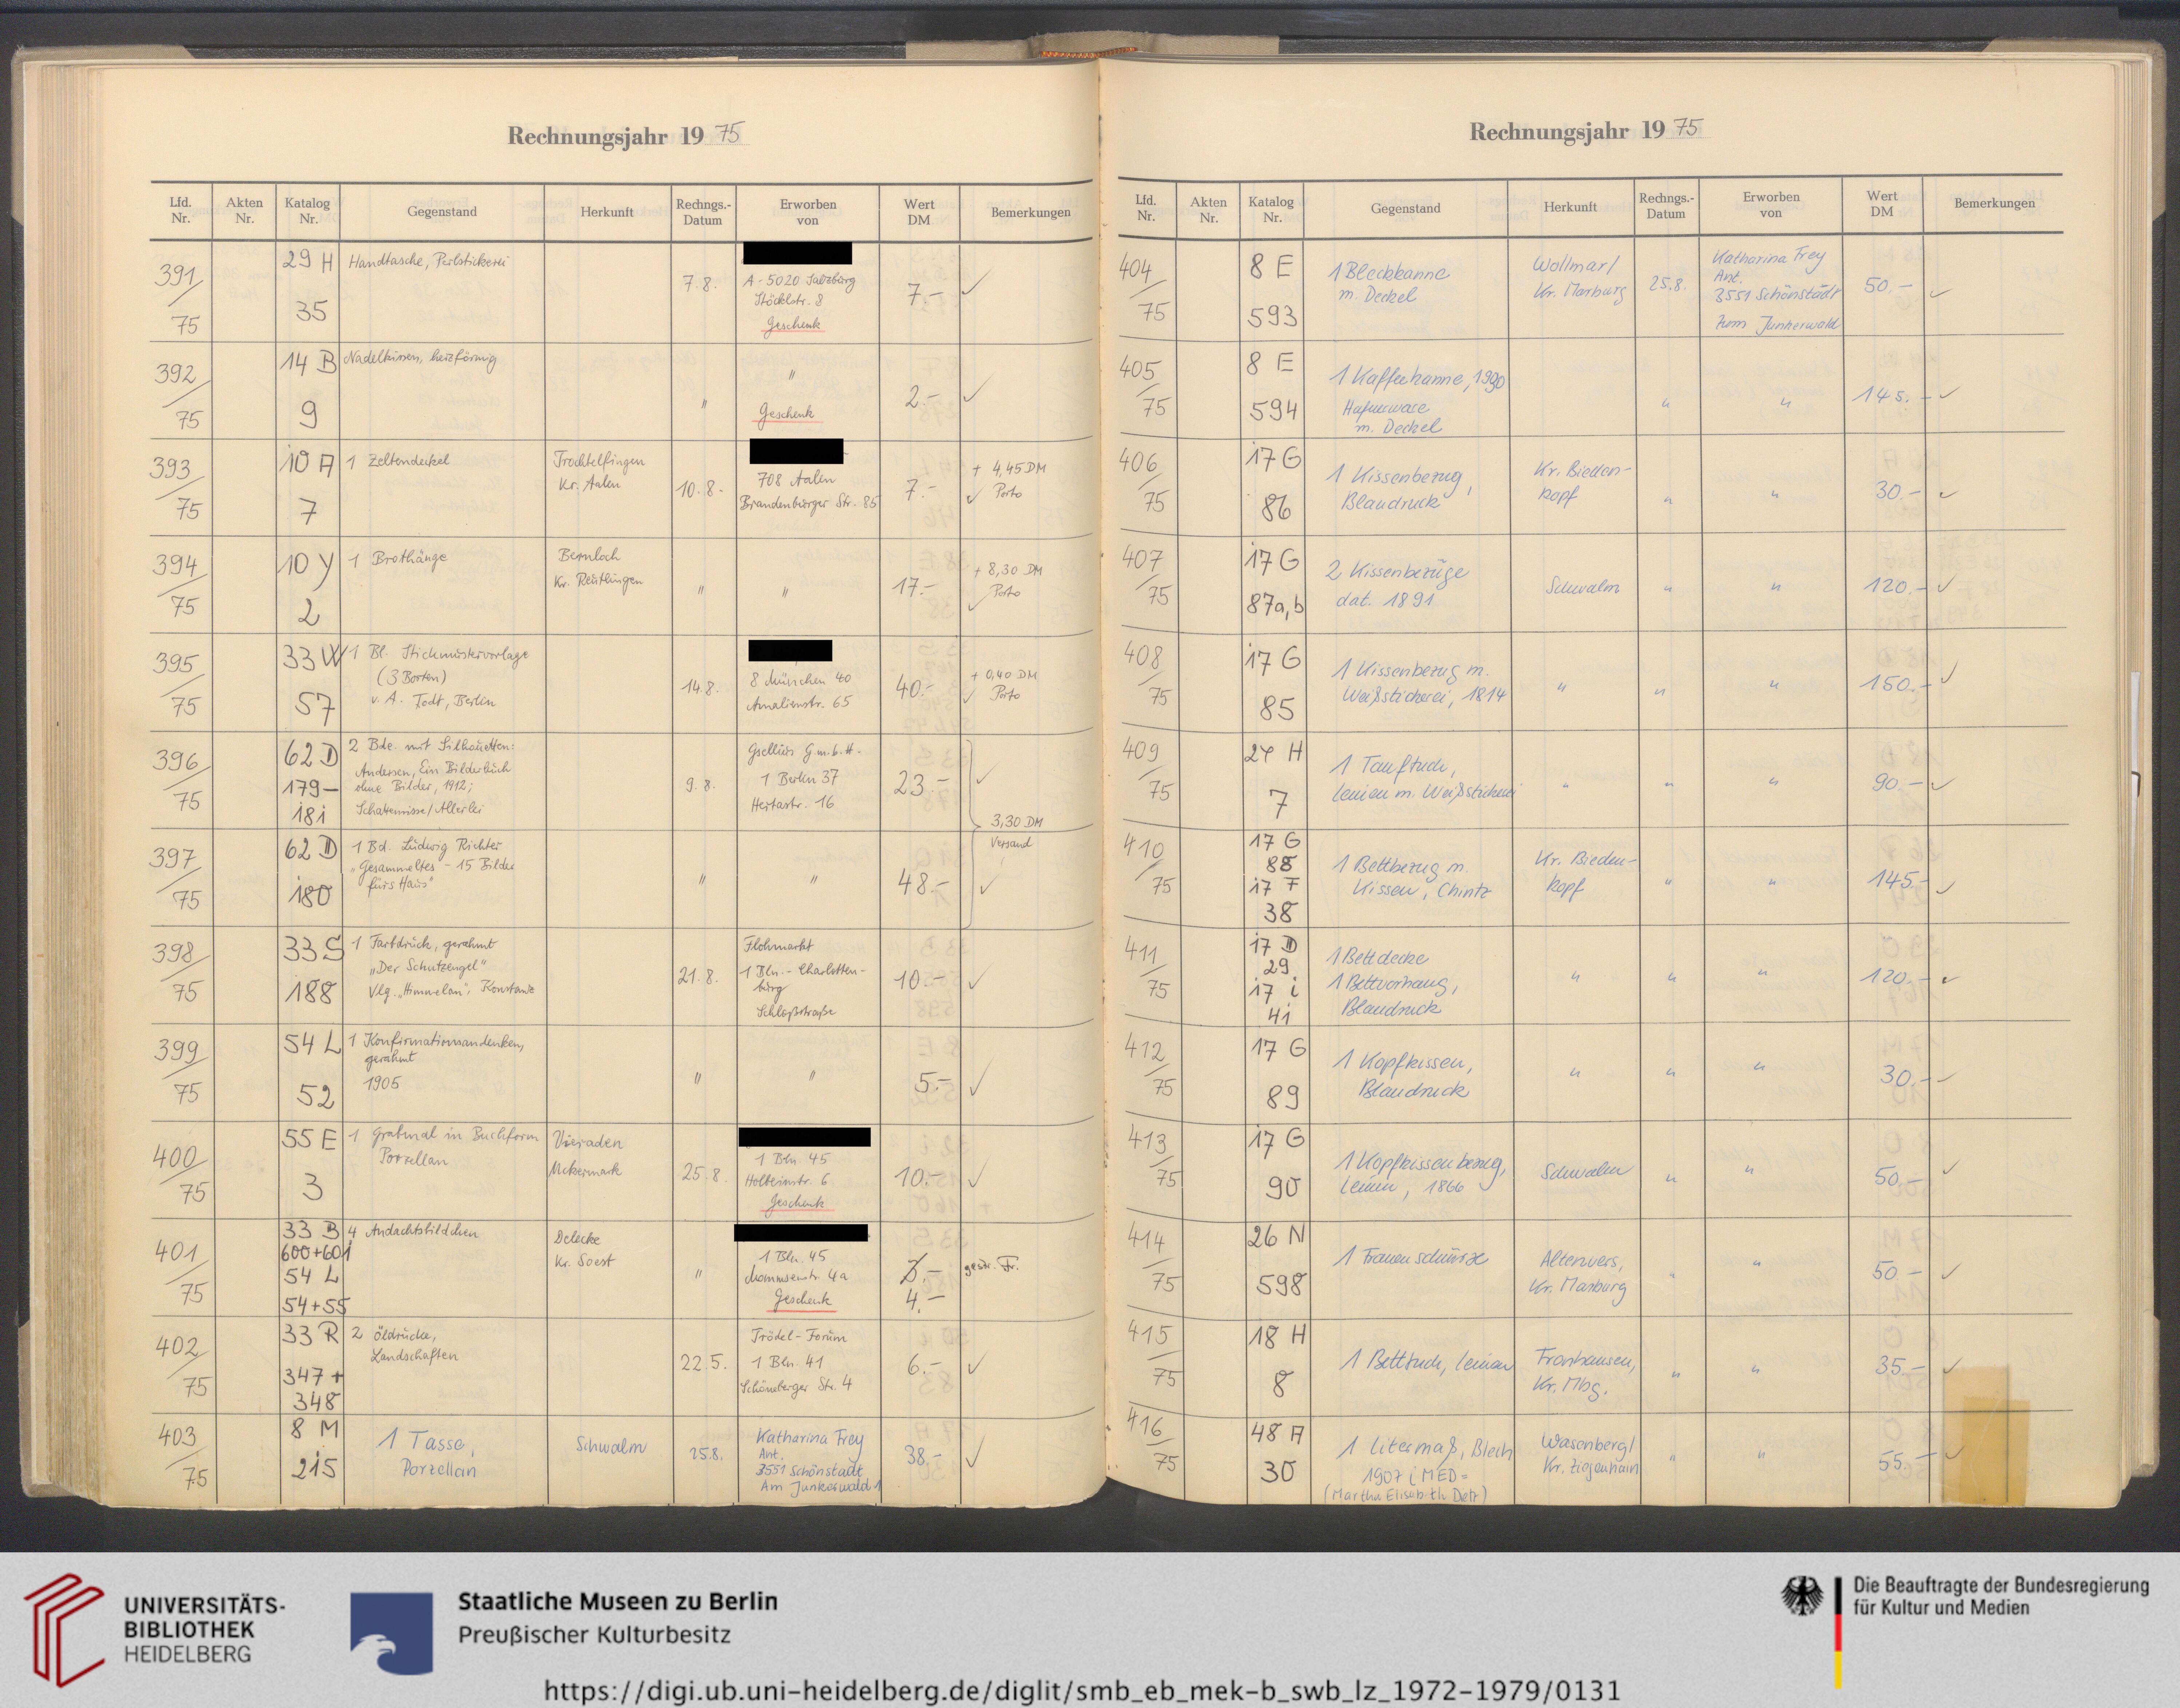 Rechnungsjahr 1975
Lfd. Nr.
Akten Nr.
Katalog Nr.
Gegenstand
Herkunft
Rechngs.-Datum
Erworben von
Wert DM
Bemerkungen
391/75
29 H
35
Handtasche, Perlstickerei
7.8.
A-5020 Salzburg
Stöcklstr. 8
Geschenk
7.-
✓
392/75
14 B
9
Nadelkissen, herzförmig
"
"
Geschenk
2.-
✓
393/75
10 A
7
1 Zeltendeckel
Trochtelfingen
Kr. Aalen
10.8.
708 Aalen
Brandenburger Str. 85
7.-
+ 4,45 DM
✓ Porto
394/75
10 Y
2
1 Brothänge
Bernloch
Kr. Reutlingen
"
"
17.-
+ 8,30 DM
✓ Porto
395/75
33 W
57
1 Bl. Stickmustervorlage
(3 Borten)
v. A. Todt, Berlin
14.8.
8 München 40
Amalienstr. 65
40.-
+ 0,40 DM
✓ Porto
396/75
62 D
179-
181
2 Bde. mit Silhouetten:
Andersen, Ein Bilderbuch
ohne Bilder, 1912;
Schattenrisse/Allerlei
9.8.
Gsellius G.m.b.H.
1 Berlin 37
Hertastr. 16
23.-
✓
3,30 DM
Versand
397/75
62 D
180
1 Bd. Ludwig Richter
"Gesammeltes" - 15 Bilder
fürs Haus"
"
"
48.-
✓
398/75
33 S
188
1 Farbdruck, gerahmt
"Der Schutzengel"
Vlg. "Himmelan", Konstanz
21.8.
Flohmarkt
1 Bln.-Charlotten-
burg
Schloßstraße
10.-
✓
399/75
54 L
52
1 Konfirmationsandenken,
gerahmt
1905
"
"
5.-
✓
400/75
55 E
3
1 Grabmal in Buchform
Porzellan
Vieraden
Uckermark
25.8.
1 Bln. 45
Holbeinstr. 6
Geschenk
10.-
✓
401/75
33 B
600+601
54 L
54+55
4 Andachtsbildchen
Delecke
Kr. Soest
"
1 Bln. 45
Mommsenstr. 4a
Geschenk
4.-
gestr. Fr.
402/75
33 R
347+
348
2 Öldrucke,
Landschaften
22.5.
Trödel-Forum
1 Bln. 41
Schöneberger Str. 4
6.-
✓
403/75
8 M
215
1 Tasse,
Porzellan
Schwalm
25.8.
Katharina Frey
Ant.
3551 Schönstadt
Am Junkerwald 1
38.-
✓
Rechnungsjahr 1975
Lfd. Nr.
Akten Nr.
Katalog Nr.
Gegenstand
Herkunft
Rechngs.-Datum
Erworben von
Wert DM
Bemerkungen
404/75
8 E
593
1 Blechkanne
m. Deckel
Wollmar/
Kr. Marburg
25.8.
Katharina Frey
Ant.
3551 Schönstadt
Zum Junkerwald
50.-
✓
405/75
8 E
594
1 Kaffeekanne,
Hafnerware
m. Deckel
"
"
145.-
✓
406/75
17 G
86
1 Kissenbezug,
Blaudruck
Kr. Bieden-
kopf
"
"
30.-
✓
407/75
17 G
87a,b
2 Kissenbezüge
dat. 1891
Schwalm
"
"
120.-
✓
408/75
17 G
85
1 Kissenbezug m.
Weißstickerei, 1814
"
"
"
150.-
✓
409/75
24 H
7
1 Tauftuch,
Leinen m. Weißstickerei
"
"
"
90.-
✓
410/75
17 G
88
17 F
38
1 Bettbezug m.
Kissen, Chintz
Kr. Bieden-
kopf
"
"
145.-
✓
411/75
17 D
29
17 i
41
1 Bettdecke
1 Bettvorhang,
Blaudruck
"
"
"
120.-
✓
412/75
17 G
89
1 Kopfkissen,
Blaudruck
"
"
"
30.-
✓
413/75
17 G
90
1 Kopfkissenbezug,
Leinen, 1866
Schwalm
"
"
50.-
✓
414/75
26 N
598
1 Frauenschürze
Altenvers,
Kr. Marburg
"
"
50.-
✓
415/75
18 H
8
1 Betttuch, Leinen
Fronhausen,
Kr. Mbg.
"
"
35.-
✓
416/75
48 A
30
1 Litermaß, Blech
1907 i MED =
(Martha Elisabeth Detr)
Wasenberg/
Kr. Ziegenhain
"
"
55.-
✓
UNIVERSITÄTS-
BIBLIOTHEK
HEIDELBERG
Staatliche Museen zu Berlin
Preußischer Kulturbesitz
Die Beauftragte der Bundesregierung
für Kultur und Medien
https://digi.ub.uni-heidelberg.de/diglit/smb_eb_mek-b_swb_lz_1972-1979/0131